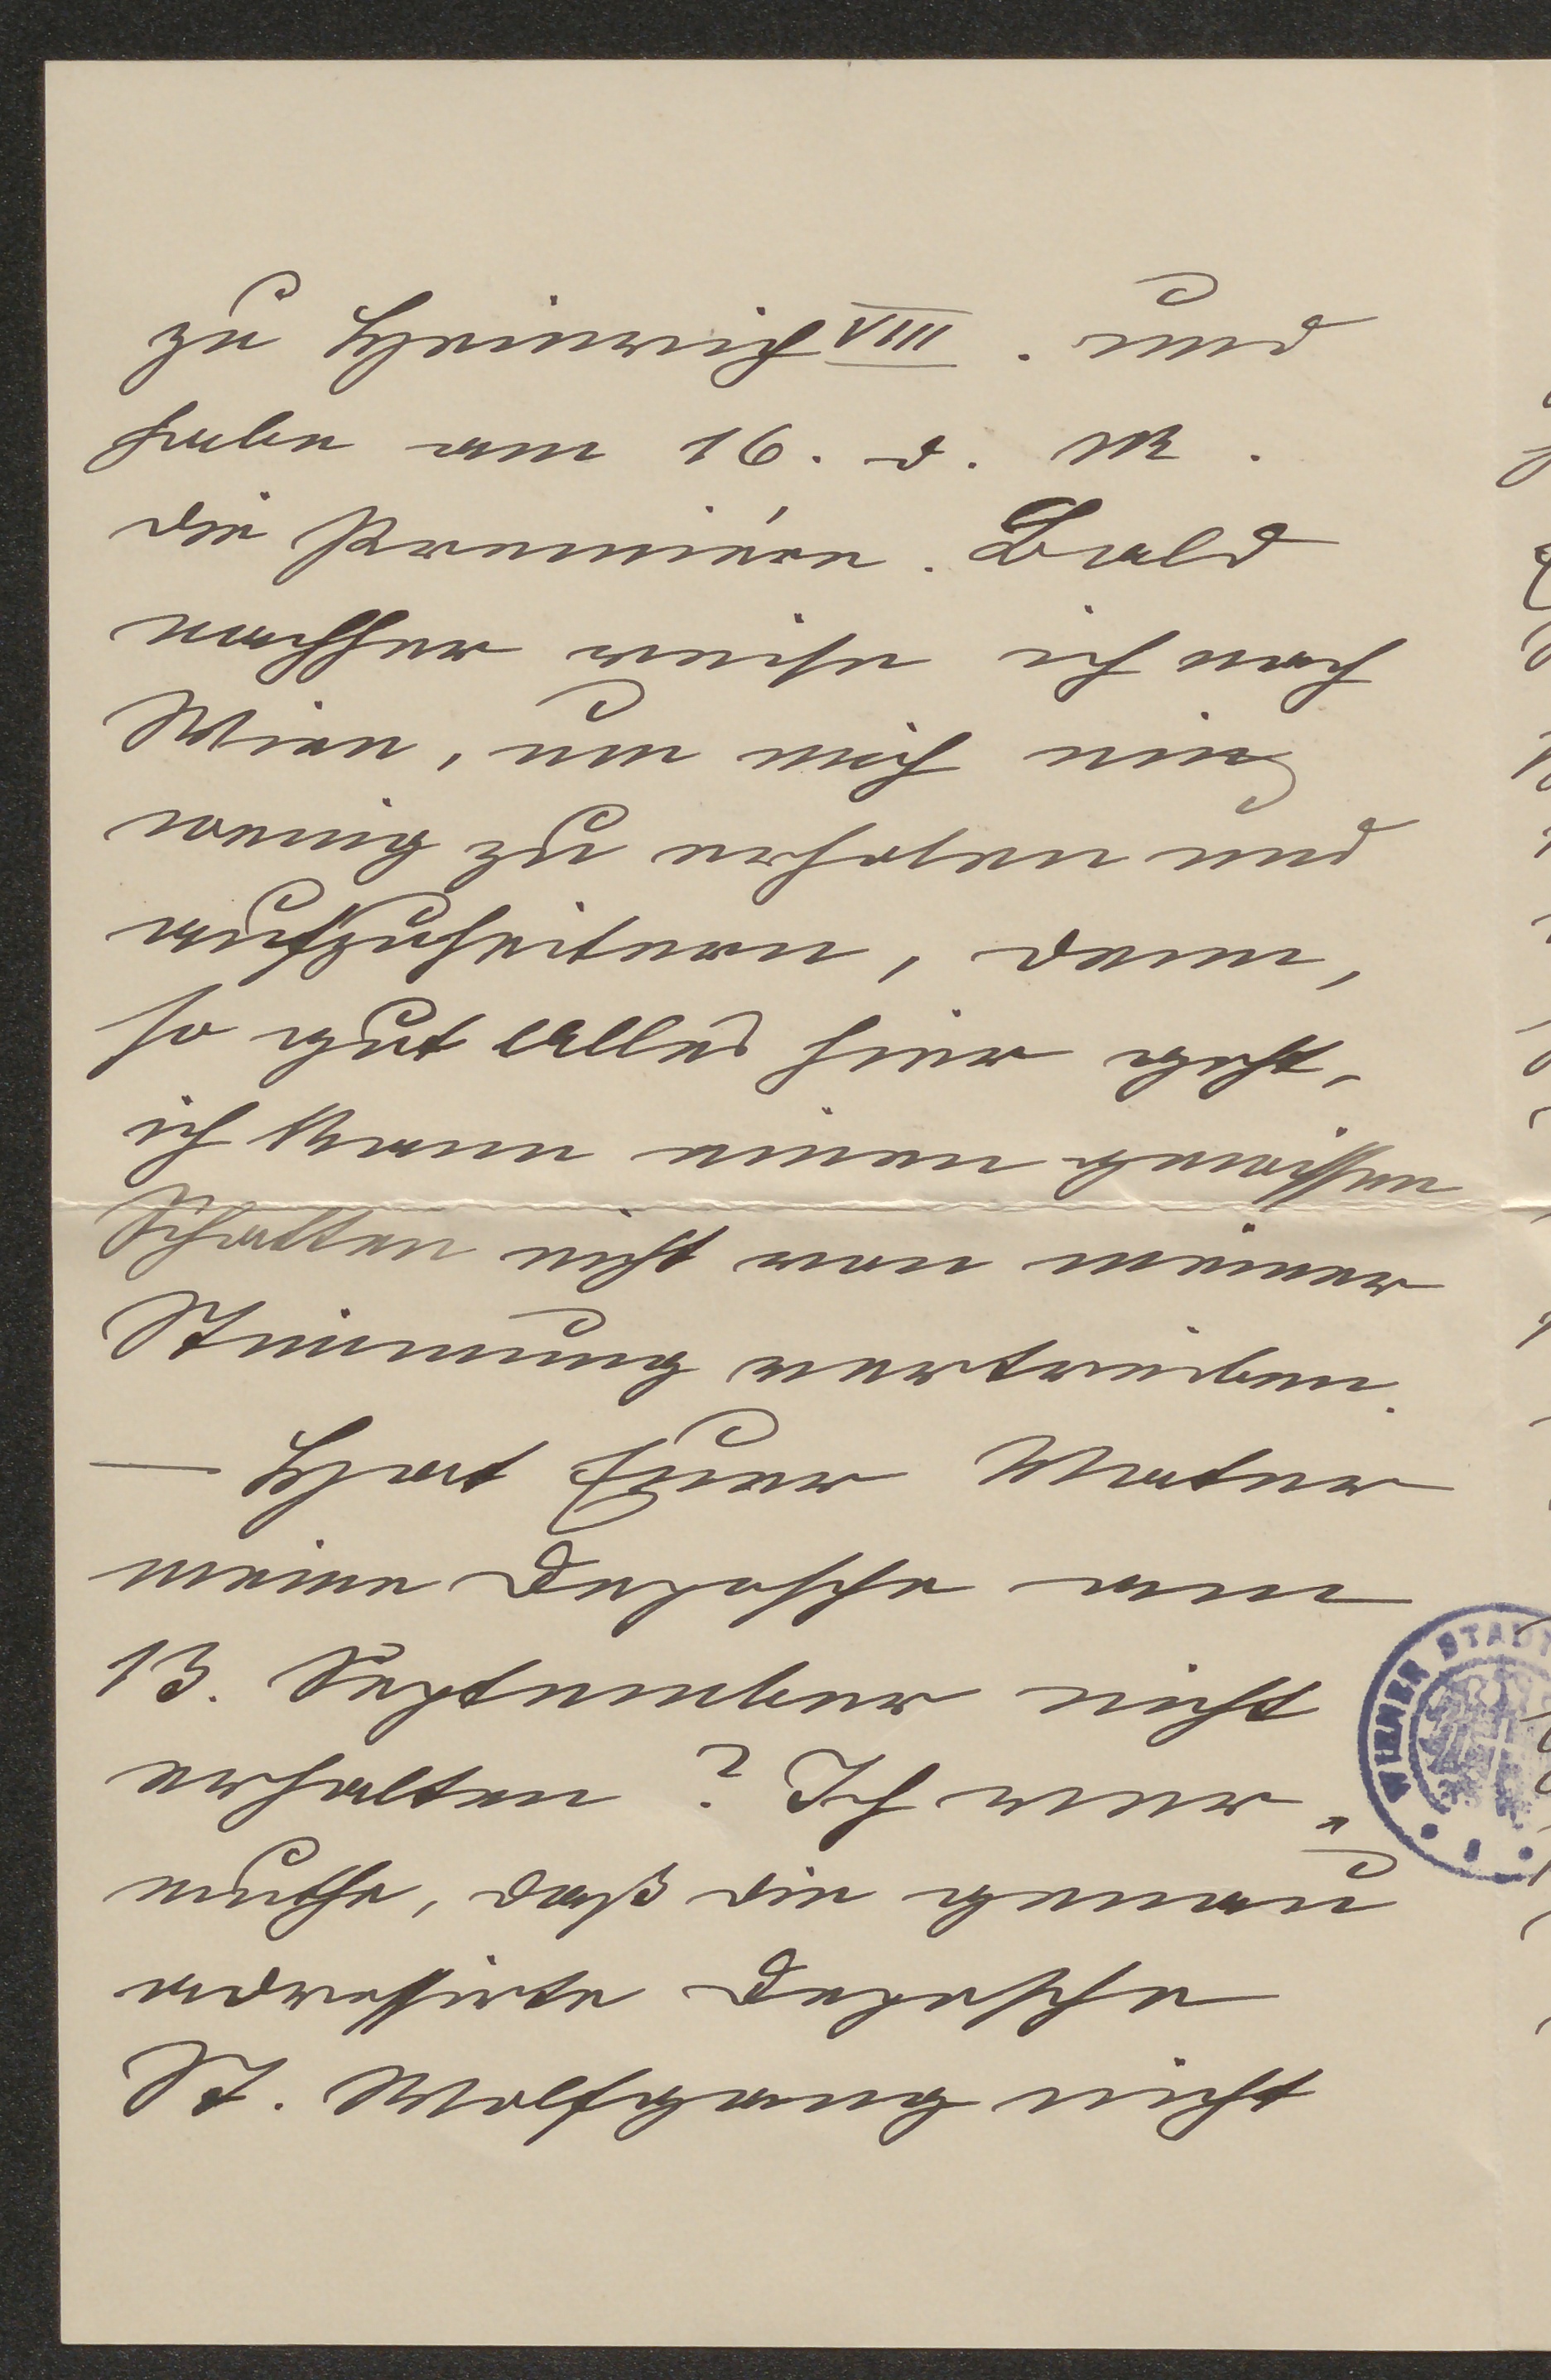 zu Heinrich VIII. und
habe am 16. d. M.
die Première. Bald
nachher reise ich nach
Wien, um mich ein
wenig zu erholen und
aufzuheitern, denn,
so gut alles hier geht,
ich kann einen gewissen
Schatten nicht von meiner
Stimmung vertreiben.
— Hat Euer Vater
meine Depesche am
13. September nicht
erhalten? Ich ver-
muthe, daß die genau
adressirte Depesche
St. Wolfgang nicht
WIENER STADT